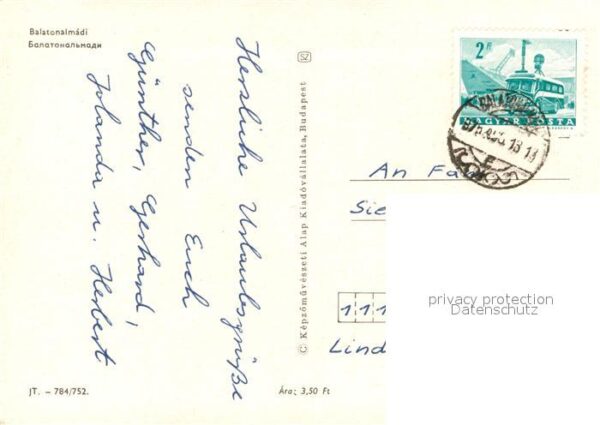 Balatonalmádi
Балатональмади
Herzliche Urlaubsgrüße
senden Euch
Günther, Gerhard,
Jolanda u. Herbert
JT. – 784/752.
Ára: 3,50 Ft
© Képzőművészeti Alap Kiadóvállalata, Budapest
2 Ft
MAGYAR POSTA
An Fa
Sie
111
Lind
privacy protection
Datenschutz